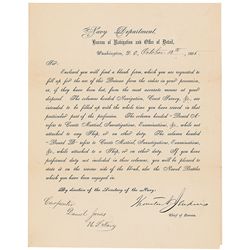 Navy Department,
Bureau of Navigation and Office of Detail,
Washington, D. C., October 19th, 186
Sir:
Enclosed you will find a blank form, which you are requested to
fill up for the use of this Bureau from the orders in your possession, or,
if they are not at hand, from the most accurate means at your
disposal. The columns headed Navigation, Coast Survey, &c., are
intended to be filled up with the whole time you have served in that
particular part of the profession. The column headed "Board A"
refers to Courts Martial, Investigations, Examinations, &c., when not
attached to any Ship or other duty. The column headed
"Board B" refers to Courts Martial, Investigations, Examinations,
&c., when attached to any Ship or on other duty. If you have
performed duty not included in these columns, you are requested to
state it on the reverse side of the blank, also the Naval Battles
which you have been engaged in.
By direction of the Secretary of the Navy:
Thornton A. Jenkins
Chief of Bureau.
Carpenter
Daniel Jones
U. S. Navy